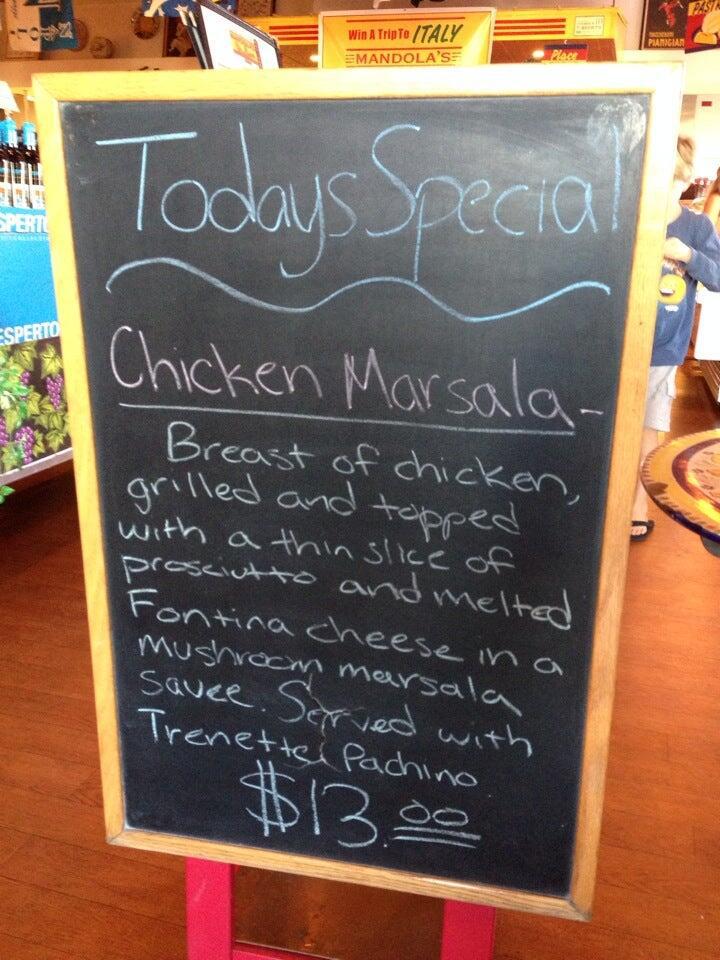 Win A Trip To ITALY
MANDOLA'S
Place
PIANIGIAN
PAST
SPERTO
ESPERTO
Todays Special
Chicken Marsala-
Breast of chicken,
grilled and topped
with a thin slice of
prosciutto and melted
Fontina cheese in a
mushroom marsala
sauce. Served with
Trenette Pachino
$13.00